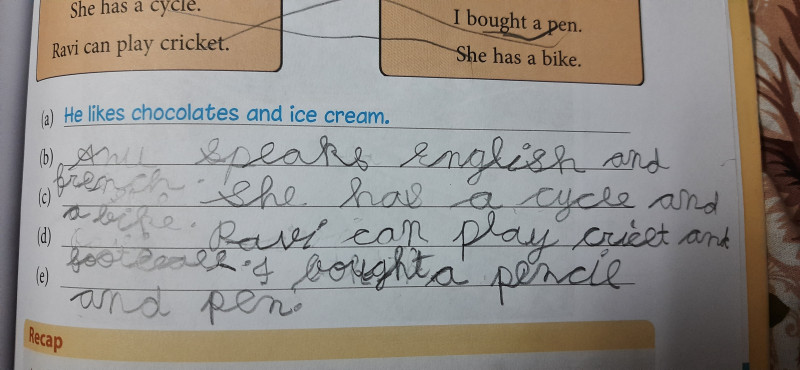 She has a cycle.
Ravi can play cricket.
I bought a pen.
She has a bike.
(a) He likes chocolates and ice cream.
(b) Anu speaks english and
french.
(c) She has a cycle and
a bike.
(d) Ravi can play cricet and
football.
(e) I bought a pencil
and pen.
Recap